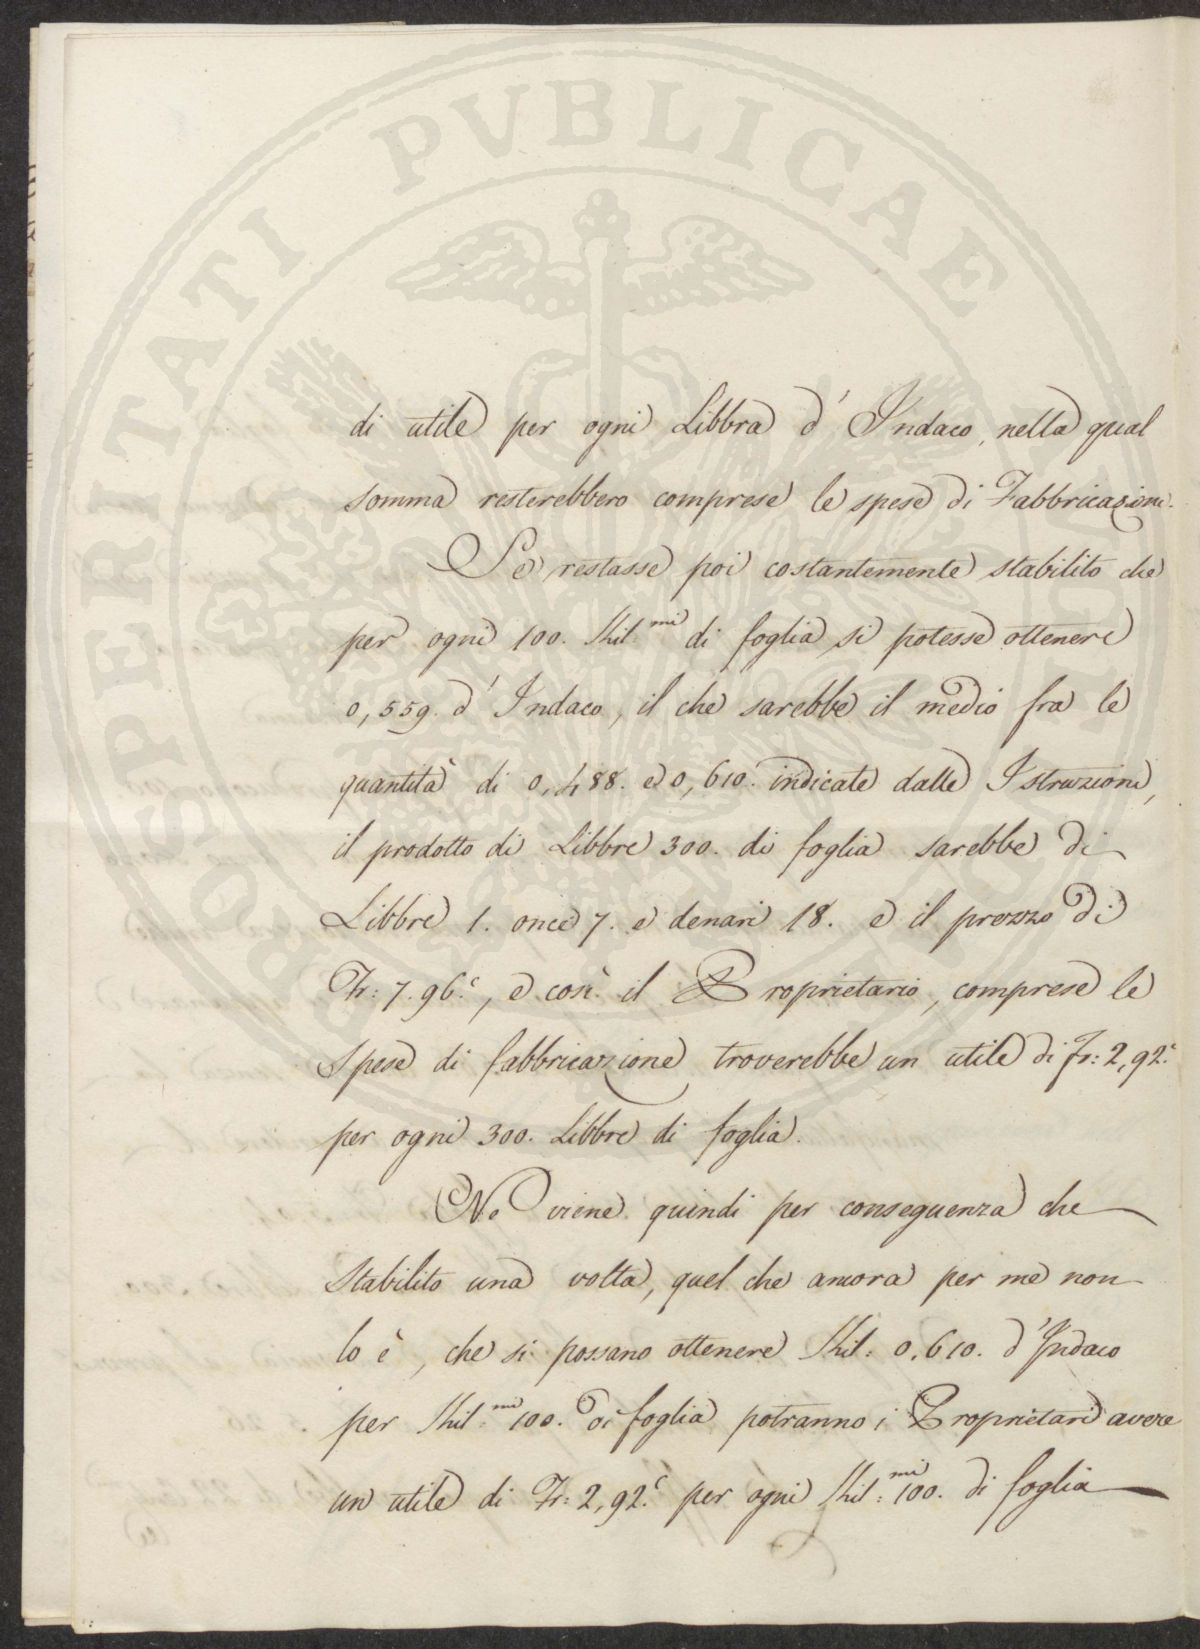 di utile per ogni Libbra d'Indaco, nella qual
somma resterebbero comprese le spese di Fabbricazione.
Se restasse poi costantemente stabilito che
per ogni 100. Kil.mi di foglia si potesse ottenere
0,559. d'Indaco, il che sarebbe il medio fra le
quantità di 0,488. e 0,610. indicate dalle Istruzioni,
il prodotto di Libbre 300. di foglia sarebbe di
Libbre 1. once 7. e denari 18. e il prezzo di
Fr: 7.96.c, e così il Proprietario, comprese le
spese di fabbricazione troverebbe un utile di fr: 2,92.c
per ogni 300. Libbre di foglia.
Ne viene quindi per conseguenza che
stabilito una volta, quel che ancora per me non
lo è, che si possano ottenere Kil: 0,610. d'Indaco
per Kil.mi 100. di foglia potranno i Proprietari avere
un utile di Fr: 2,92.c per ogni Kil:mi 100. di foglia
PROSPERITATI PVBLICAE